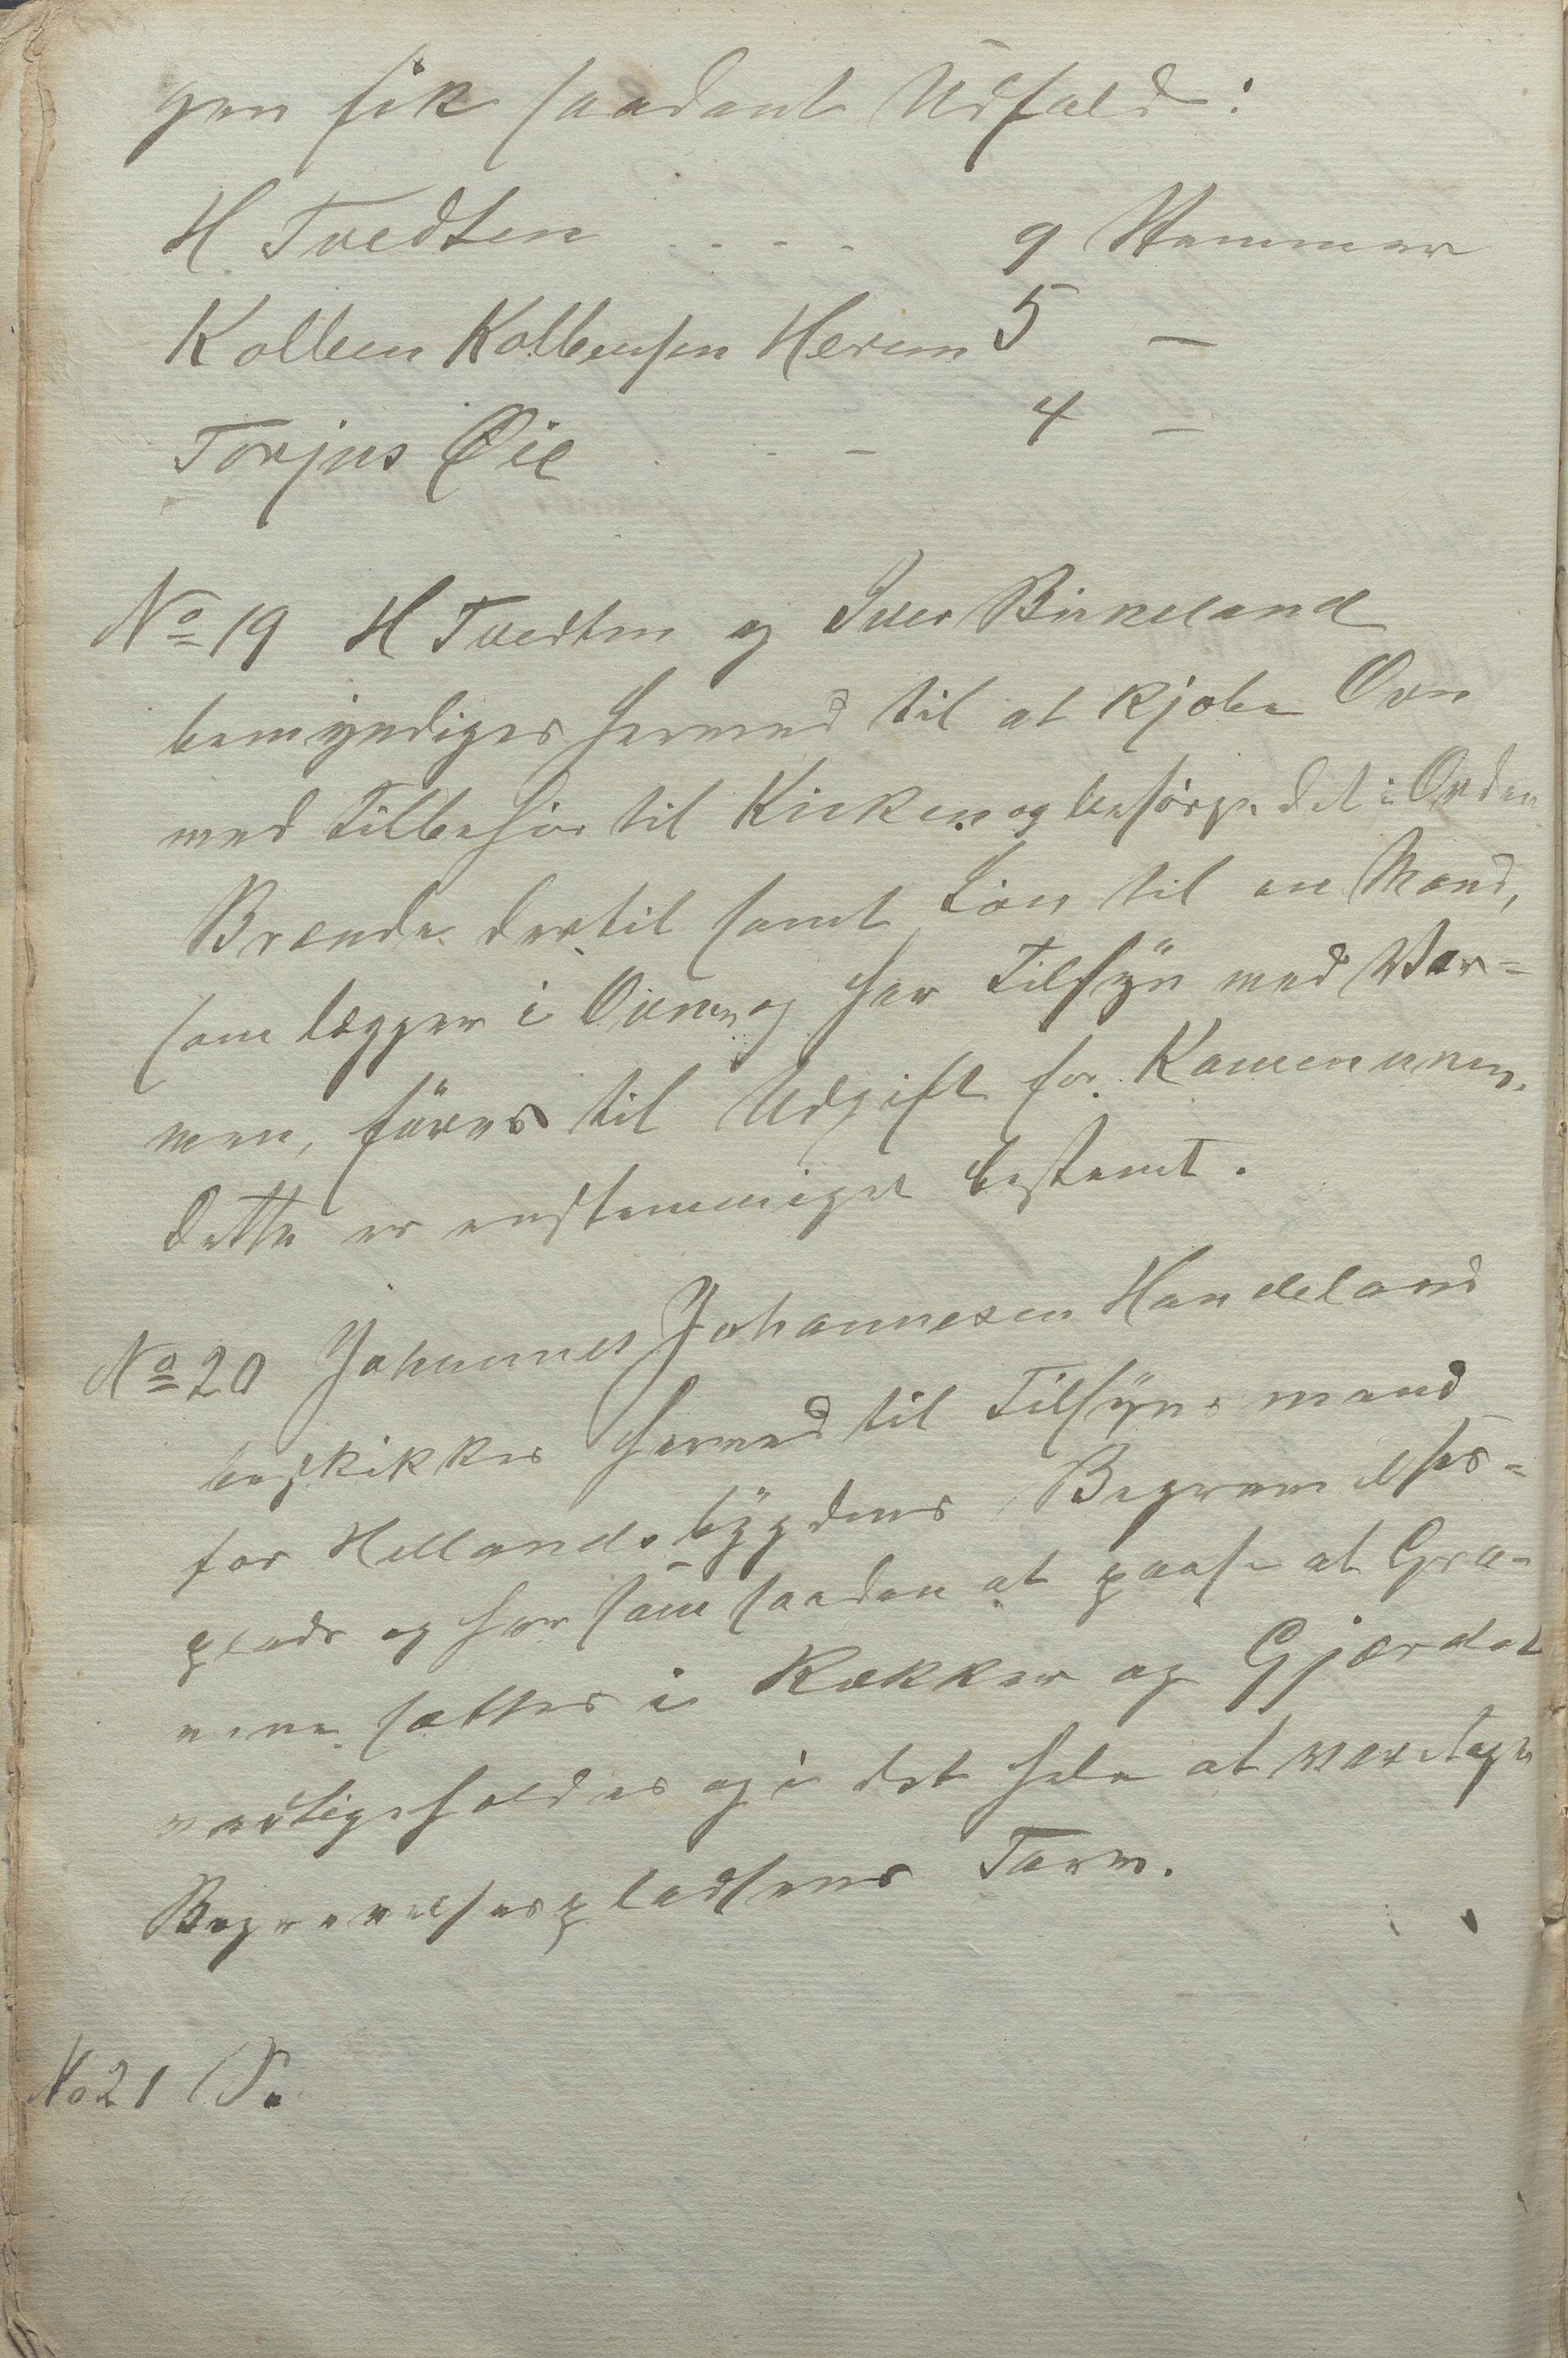 gen fik saadant Udfald:
H Tvedten . . . . 9 Stemmer
Kolben Kolbensen Herem 5 —
Torjus Øie . . — 4 —
No 19 H Tvedten og Iver Birkeland
bemyndiges herved til at kjøbe Ovn
med Tilbehør til Kirken og besørge det i Orden
Brænde dertil samt Løn til en Mand,
som lægger i Ovnen og har Tilsyn med Var-
men, føres til Udgift for Kommunen.
Dette er enstemmiget bestemt.
No 20 Johannes Johannesen Handeland
beskikkes herved til Tilsynsmand
for Hellandsbygdens Begravelses-
plads og har som saadan at paase at Gra-
vene sættes i Rækker og Gjærdet
vedligeholdes og i det hele at varetage
Begravelsespladsens Tarv.
No 21 S.